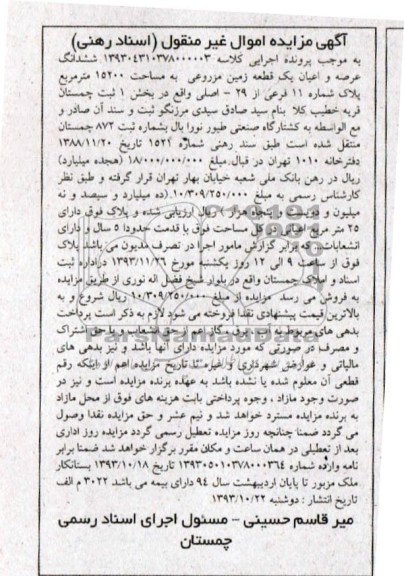 آگهی مزایده اموال غیر منقول (اسناد رهنی)
به موجب پرونده اجرایی کلاسه ۱۳۹۳۰۴۳۱۰۳۷۸۰۰۰۰۰۳ ششدانگ
عرصه و اعیان یک قطعه زمین مزروعی به مساحت ۱۵۲۰۰ مترمربع
پلاک شماره ۱۱ فرعی از ۲۹ - اصلی واقع در بخش ۱ ثبت چمستان
قریه خطیب کلا بنام سید صادق سیدی مرزنگو ثبت و سند آن صادر و
مع الواسطه به کشتارگاه صنعتی طیور نورا بال بشماره ثبت ۸۷۲ چمستان
منتقل شده است طبق سند رهنی شماره ۱۵۲۱ تاریخ ۱۳۸۸/۱۱/۲۰
دفترخانه ۱۰۱۰ تهران در قبال مبلغ ۱۸/۰۰۰/۰۰۰/۰۰۰ (هجده میلیارد)
ریال در رهن بانک ملی شعبه خیابان بهار تهران قرار گرفته و طبق نظر
کارشناس رسمی به مبلغ ۱۰/۳۰۹/۲۵۰/۰۰۰ (ده میلیارد و سیصد و نه
میلیون و دویست و پنجاه هزار) ریال ارزیابی شده و پلاک فوق دارای
۲۵ متر مربع اعیانی در کل مساحت فوق با قدمت حدودا ۵ سال و دارای
انشعابات... که برابر گزارش مامور اجرا در تصرف مدیون می باشد پلاک
فوق از ساعت ۹ الی ۱۲ روز یکشنبه مورخ ۱۳۹۳/۱۱/۲۶ در اداره ثبت
اسناد و املاک چمستان واقع در بلوار شیخ فضل اله نوری از طریق مزایده
به فروش می رسد مزایده از مبلغ ۱۰/۳۰۹/۲۵۰/۰۰۰ ریال شروع و به
بالاترین قیمت پیشنهادی نقدا فروخته می شود لازم به ذکر است پرداخت
بدهی های مربوط به آب، برق، گاز اعم از حق انشعاب و یا حق اشتراک
و مصرف در صورتی که مورد مزایده دارای آنها باشد و نیز بدهی های
مالیاتی و عوارض شهرداری و غیره تا تاریخ مزایده اعم از اینکه رقم
قطعی آن معلوم شده یا نشده باشد به عهده برنده مزایده است و نیز در
صورت وجود مازاد، وجوه پرداختی بابت هزینه های فوق از محل مازاد
به برنده مزایده مسترد خواهد شد و نیم عشر و حق مزایده نقدا وصول
می گردد ضمنا چنانچه روز مزایده تعطیل رسمی گردد مزایده روز اداری
بعد از تعطیلی در همان ساعت و مکان مقرر برگزار خواهد شد ضمنا برابر
نامه وارده شماره ۱۳۹۳۰۵۰۱۰۳۷۸۰۰۰۳۶۴ تاریخ ۱۳۹۳/۱۰/۱۸ بستانکار
ملک مزبور تا پایان اردیبهشت سال ۹۴ دارای بیمه می باشد ۳۰۲۲ م الف
تاریخ انتشار : دوشنبه ۱۳۹۳/۱۰/۲۲
میر قاسم حسینی – مسئول اجرای اسناد رسمی
چمستان